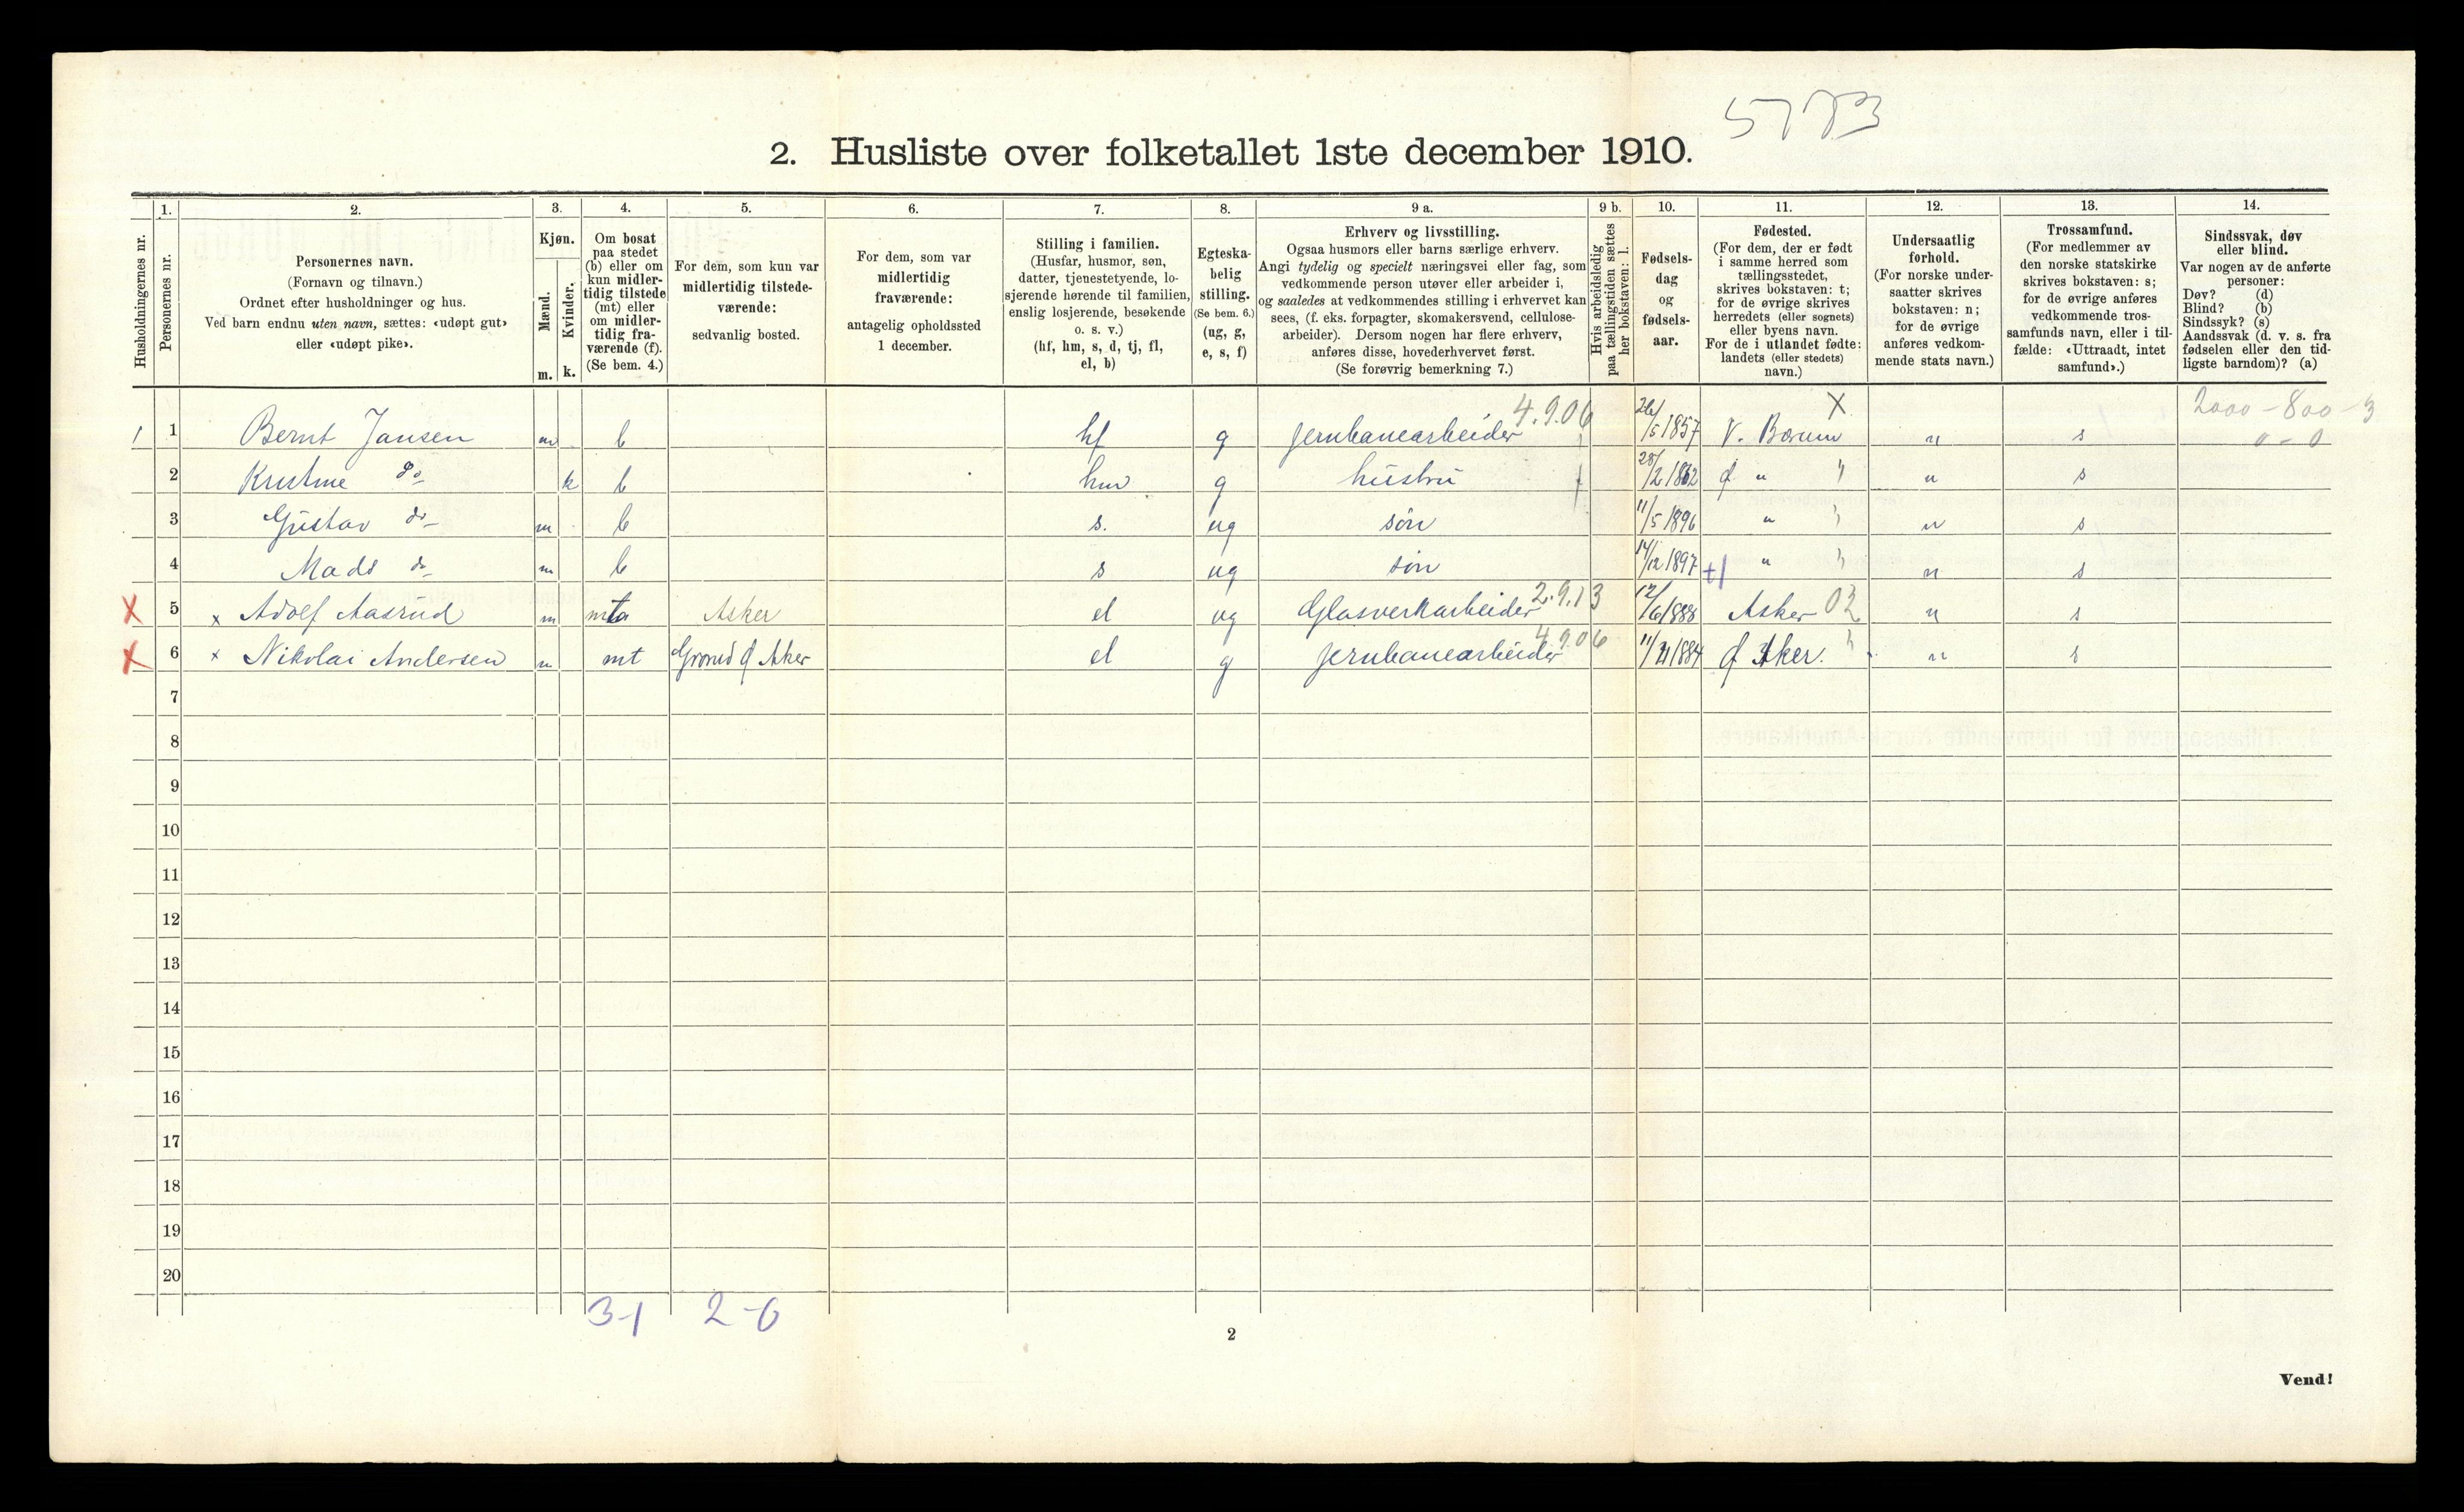 2. Husliste over folketallet 1ste december 1910.
Husholdningernes nr.
1.
Personernes nr.
2.
Personernes navn.
(Fornavn og tilnavn.)
Ordnet efter husholdninger og hus.
Ved barn endnu uten navn, sættes: «udøpt gut»
eller «udøpt pike».
3.
Kjøn.
Mænd.
Kvinder.
m. k.
4.
Om bosat
paa stedet
(b) eller om
kun midler-
tidig tilstede
(mt) eller
om midler-
tidig fra-
værende (f).
(Se bem. 4.)
5.
For dem, som kun var
midlertidig tilstede-
værende:
sedvanlig bosted.
6.
For dem, som var
midlertidig
fraværende:
antagelig opholdssted
1 december.
7.
Stilling i familien.
(Husfar, husmor, søn,
datter, tjenestetyende, lo-
sjerende hørende til familien,
enslig losjerende, besøkende
o. s. v.)
(hf, hm, s, d, tj, fl,
el, b)
8.
Egteska-
belig
stilling.
(Se bem. 6.)
(ug, g,
e, s, f)
9 a.
Erhverv og livsstilling.
Ogsaa husmors eller barns særlige erhverv.
Angi tydelig og specielt næringsvei eller fag, som
vedkommende person utøver eller arbeider i,
og saaledes at vedkommendes stilling i erhvervet kan
sees, (f. eks. forpagter, skomakersvend, cellulose-
arbeider). Dersom nogen har flere erhverv,
anføres disse, hovederhvervet først.
(Se forøvrig bemerkning 7.)
9 b.
Hvis arbeidsledig
paa tællingstiden sættes
her bokstaven: l l.
10.
Fødsels-
dag
og
fødsels-
aar.
11.
Fødested.
(For dem, der er født
i samme herred som
tællingsstedet,
skrives bokstaven: t;
for de øvrige skrives
herredets (eller sognets)
eller byens navn.
For de i utlandet fødte:
landets (eller stedets)
navn.)
12.
Undersaatlig
forhold.
(For norske under-
saatter skrives
bokstaven: n;
for de øvrige
anføres vedkom-
mende stats navn.)
13.
Trossamfund.
(For medlemmer av
den norske statskirke
skrives bokstaven: s;
for de øvrige anføres
vedkommende tros-
samfunds navn, eller i til-
fælde: «Uttraadt, intet
samfund».)
14.
Sindssvak, døv
eller blind.
Var nogen av de anførte
personer:
Døv? (d)
Blind? (b)
Sindssyk? (s)
Aandssvak (d. v. s. fra
fødselen eller den tid-
ligste barndom)? (a)
4.9.06 X 2000-800-3
1 1 Bernt Jansen m b hf g jernbanearbeider 26/5 1857 V. Bærum n s 0-0
2 Kristine do k b hm g hustru 28/2 1862 " " n s
3 Gustav do m b s. ug søn 11/5 1896 " " n s
4 Mads do m b s ug søn 14/12 1897 +1 " " n s
X 5 x Adolf Aasrud m mt Asker el ug Glasverkarbeider 2.9.13 12/6 1888 Asker 02 n s
X 6 x Nikolai Andersen m mt Asker el g jernbanearbeider 4906 Aker. " n s
7
8
9
10
11
12
13
14
15
16
17
18
19
20
3-1 2-0
2
Vend!